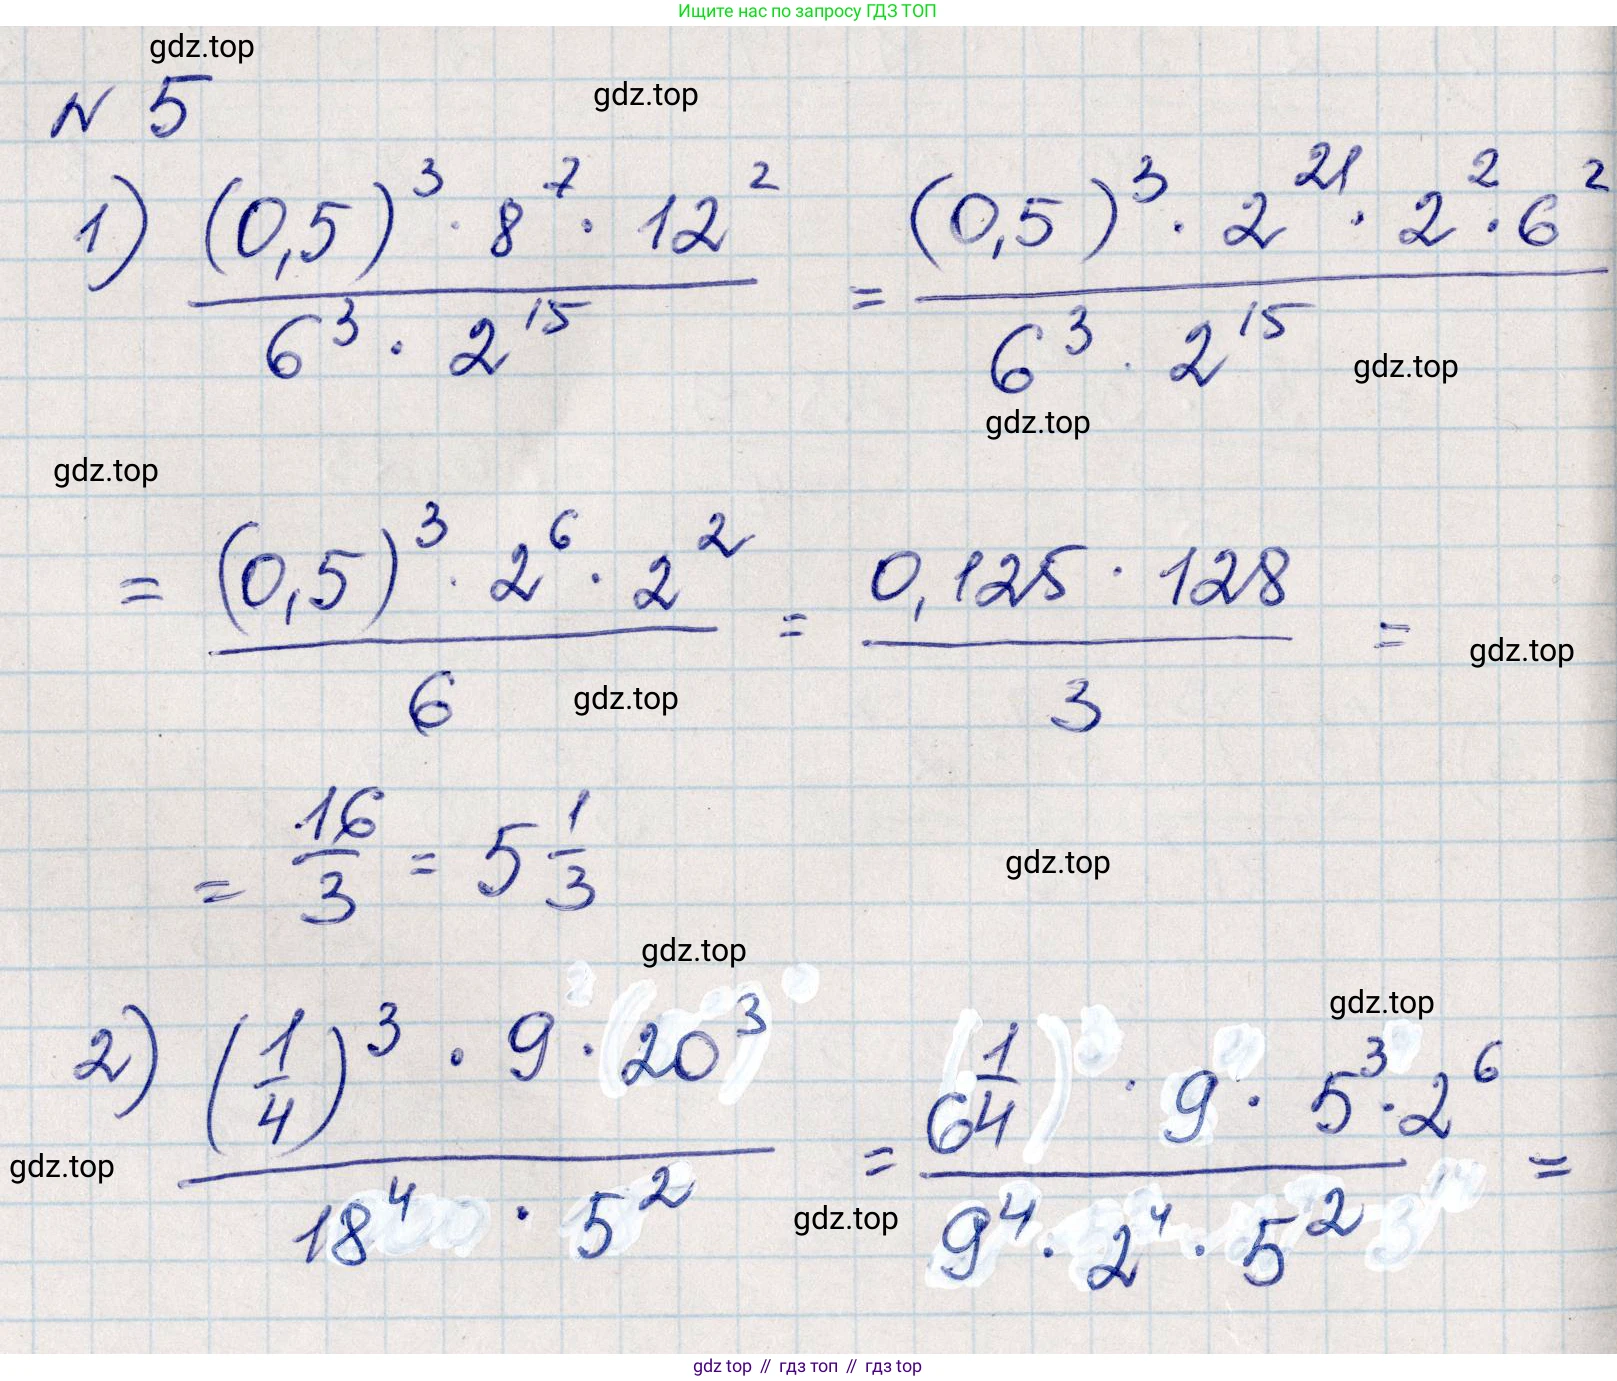 Ищите нас по запросу ГДЗ ТОП
gdz.top
N 5
gdz.top
1) (0,5)^3 · 8^7 · 12^2 / 6^3 · 2^15 = (0,5)^3 · 2^21 · 2^2 · 6^2 / 6^3 · 2^15
gdz.top
gdz.top
gdz.top
= (0,5)^3 · 2^6 · 2^2 / 6 = 0,125 · 128 / 3 =
gdz.top
gdz.top
= 16/3 = 5 1/3
gdz.top
gdz.top
gdz.top
2) (1/4)^3 · 9 · 20^3 / 18^4 · 5^2 = 1/64 · 9 · 5^3 · 2^6 / 9^4 · 2^4 · 5^2 =
gdz.top
gdz.top
gdz top // гдз топ // гдз top